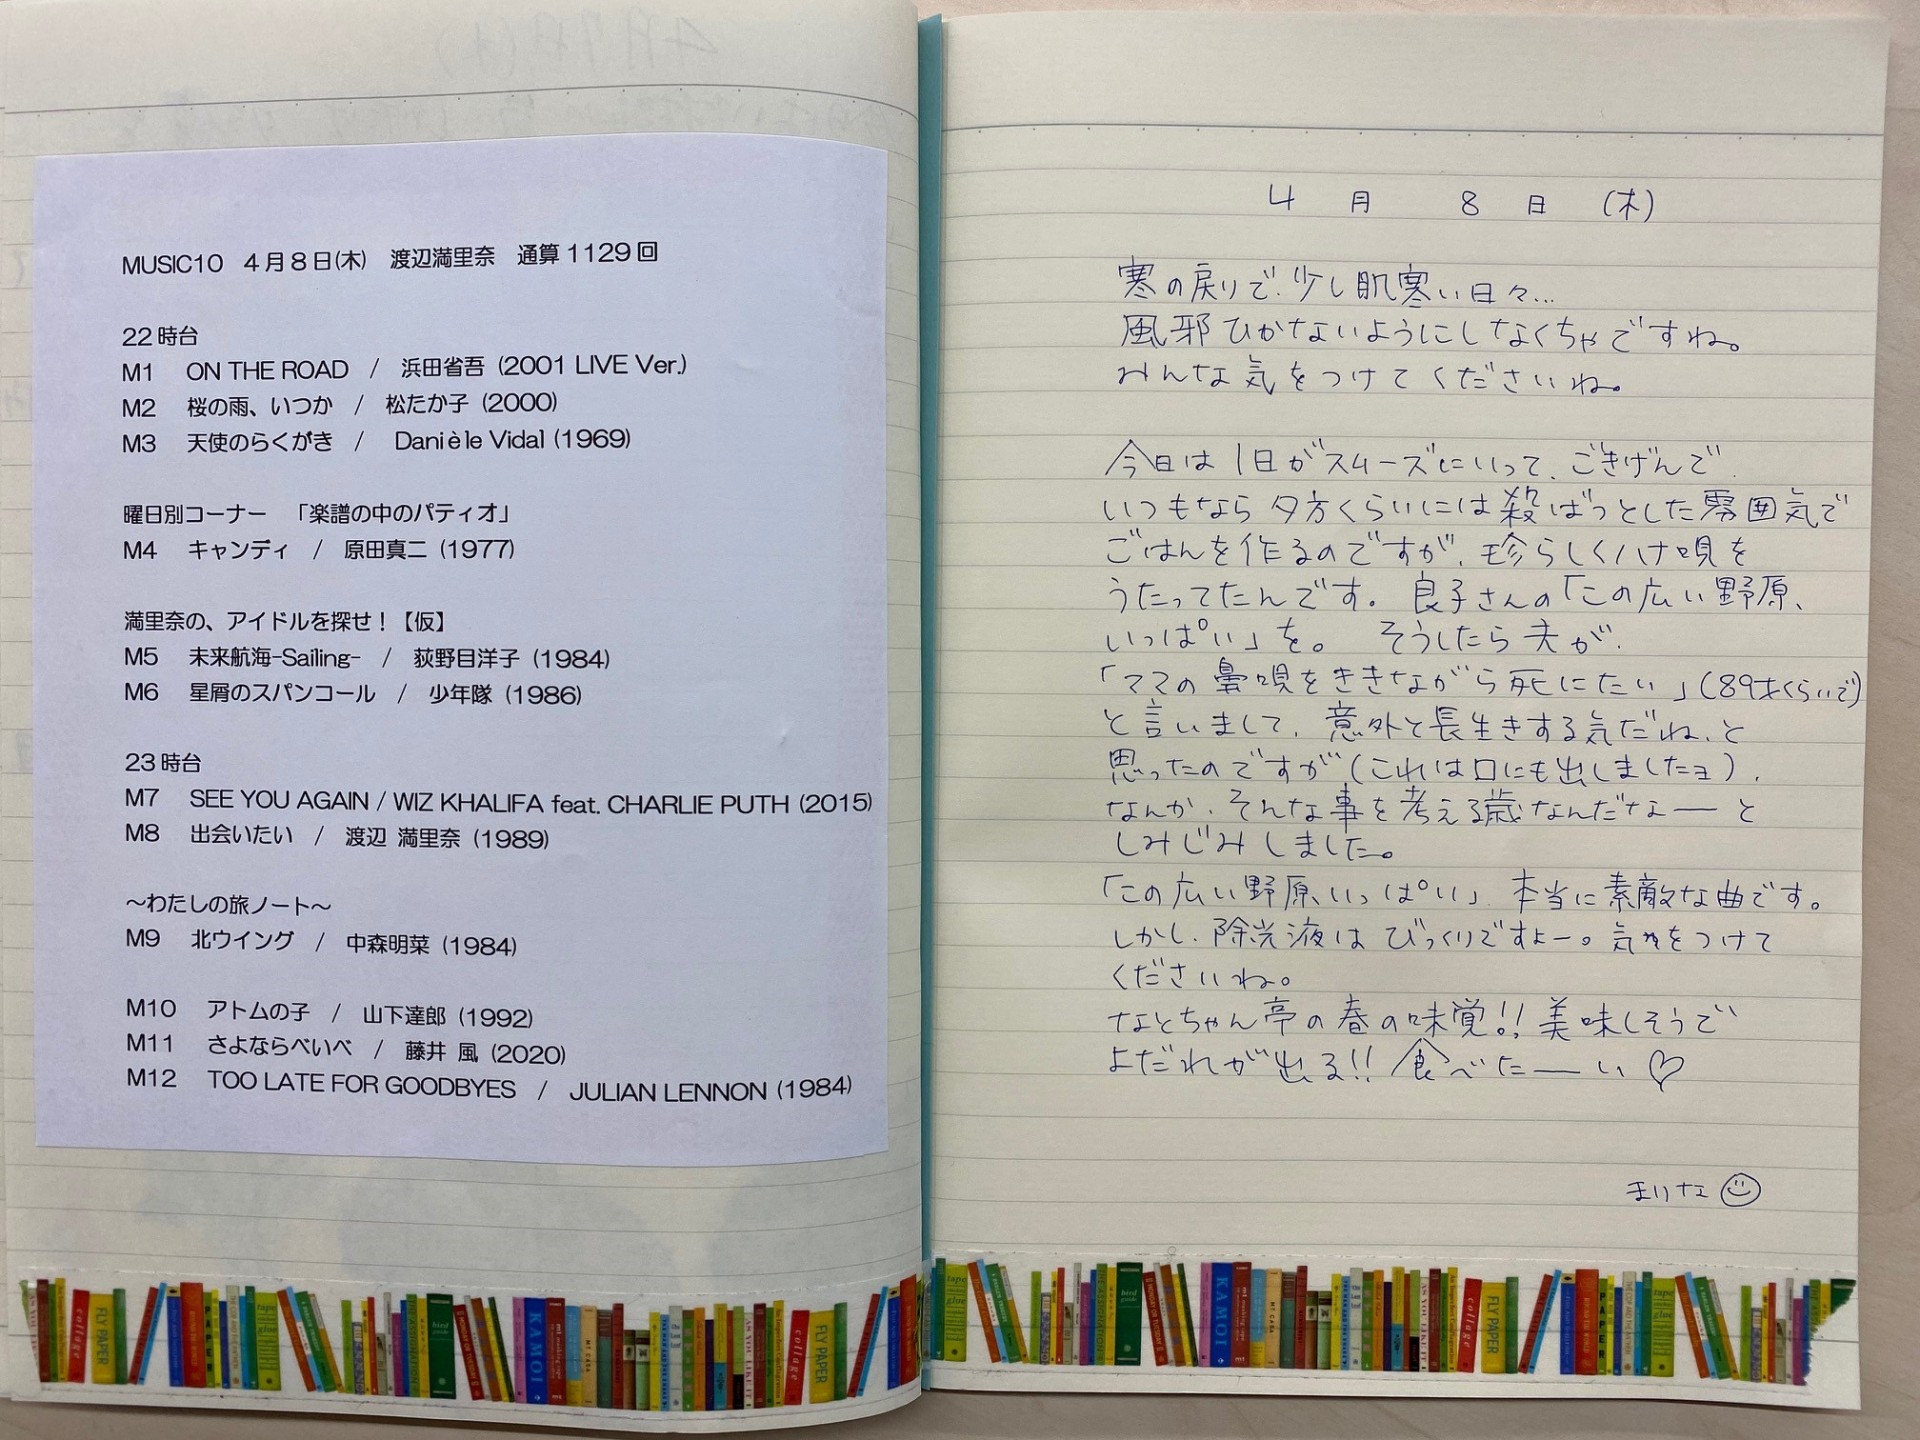 MUSIC10 4月8日(木) 渡辺満里奈 通算1129回
22時台
M1 ON THE ROAD / 浜田省吾 (2001 LIVE Ver.)
M2 桜の雨、いつか / 松たか子 (2000)
M3 天使のらくがき / Danièle Vidal (1969)
曜日別コーナー 「楽譜の中のパティオ」
M4 キャンディ / 原田真二 (1977)
満里奈の、アイドルを探せ！【仮】
M5 未来航海-Sailing- / 荻野目洋子 (1984)
M6 星屑のスパンコール / 少年隊 (1986)
23時台
M7 SEE YOU AGAIN / WIZ KHALIFA feat. CHARLIE PUTH (2015)
M8 出会いたい / 渡辺 満里奈 (1989)
～わたしの旅ノート～
M9 北ウイング / 中森明菜 (1984)
M10 アトムの子 / 山下達郎 (1992)
M11 さよならべいべ / 藤井 風 (2020)
M12 TOO LATE FOR GOODBYES / JULIAN LENNON (1984)
4月 8日 (木)
寒の戻りで、少し肌寒い日々…
風邪ひかないようにしなくちゃですね。
みんな気をつけてくださいね。
今日は1日がスムーズにいって、ごきげんで、
いつもなら夕方くらいには殺ばつとした雰囲気で
ごはんを作るのですが、珍らしくハナ唄を
うたってたんです。良子さんの「この広い野原、
いっぱい」を。そうしたら夫が、
「ママの鼻唄をききながら死にたい」(89才くらいで)
と言いまして、意外と長生きする気だね、と
思ったのですが(これは口にも出しましたヨ)、
なんか、そんな事を考える歳なんだなーと
しみじみしました。
「この広い野原、いっぱい」、本当に素敵な曲です。
しかし、除光液はびっくりですよー。気をつけて
くださいね。
なとちゃん亭の春の味覚!! 美味しそうで
よだれが出る!! 食べたーい♡
まりな
KAMOI
FLY PAPER
collage
AS YOU LIKE IT
tape
glue
PAPER
bird
KAMOI
mt
AS YOU LIKE IT
collage
FLY PAPER
PAPER
tape
glue